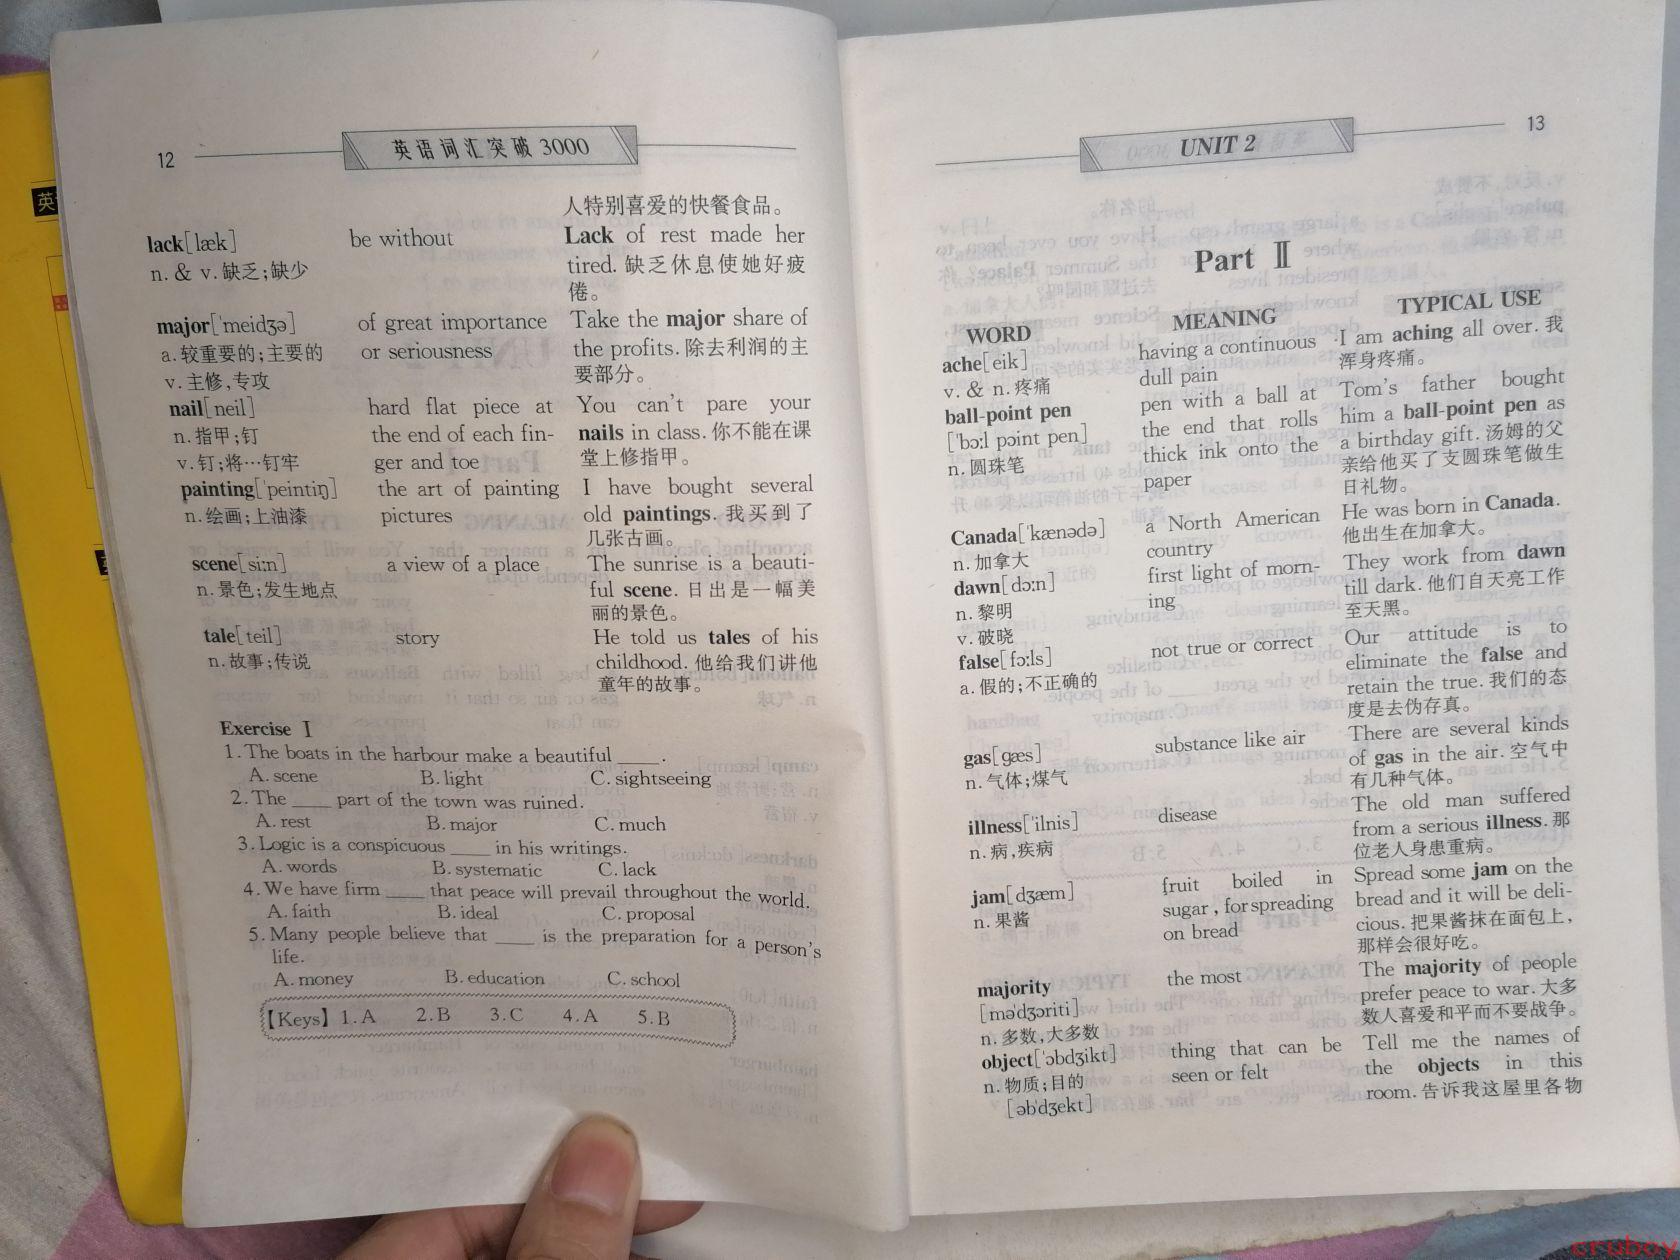 12
英语词汇突破 3000
人特别喜爱的快餐食品。
lack[læk] be without Lack of rest made her
n. & v.缺乏;缺少 tired. 缺乏休息使她好疲
倦。
major[ˈmeidʒə] of great importance Take the major share of
a.较重要的;主要的 or seriousness the profits. 除去利润的主
v.主修,专攻 要部分。
nail[neil] hard flat piece at You can't pare your
n.指甲;钉 the end of each fin- nails in class. 你不能在课
v.钉;将…钉牢 ger and toe 堂上修指甲。
painting[ˈpeintiŋ] the art of painting I have bought several
n.绘画;上油漆 pictures old paintings. 我买到了
几张古画。
scene[siːn] a view of a place The sunrise is a beauti-
n.景色;发生地点 ful scene. 日出是一幅美
丽的景色。
tale[teil] story He told us tales of his
n.故事;传说 childhood. 他给我们讲他
童年的故事。
Exercise Ⅰ
1. The boats in the harbour make a beautiful ____.
A. scene B. light C. sightseeing
2. The ____ part of the town was ruined.
A. rest B. major C. much
3. Logic is a conspicuous ____ in his writings.
A. words B. systematic C. lack
4. We have firm ____ that peace will prevail throughout the world.
A. faith B. ideal C. proposal
5. Many people believe that ____ is the preparation for a person's
life.
A. money B. education C. school
【Keys】 1. A 2. B 3. C 4. A 5. B
UNIT 2
13
Part Ⅱ
WORD MEANING TYPICAL USE
ache[eik] having a continuous I am aching all over. 我
v. & n.疼痛 dull pain 浑身疼痛。
ball-point pen pen with a ball at Tom's father bought
[ˈbɔːl pɔint pen] the end that rolls him a ball-point pen as
n.圆珠笔 thick ink onto the a birthday gift. 汤姆的父
paper 亲给他买了支圆珠笔做生
日礼物。
Canada[ˈkænədə] a North American He was born in Canada.
n.加拿大 country 他出生在加拿大。
dawn[dɔːn] first light of morn- They work from dawn
n.黎明 ing till dark. 他们自天亮工作
v.破晓 至天黑。
false[fɔːls] not true or correct Our attitude is to
a.假的;不正确的 eliminate the false and
retain the true. 我们的态
度是去伪存真。
gas[gæs] substance like air There are several kinds
n.气体;煤气 of gas in the air. 空气中
有几种气体。
illness[ˈilnis] disease The old man suffered
n.病,疾病 from a serious illness. 那
位老人身患重病。
jam[dʒæm] fruit boiled in Spread some jam on the
n.果酱 sugar, for spreading bread and it will be deli-
on bread cious. 把果酱抹在面包上,
那样会很好吃。
majority the most The majority of people
[məˈdʒɔriti] prefer peace to war. 大多
n.多数,大多数 数人喜爱和平而不要战争。
object[ˈɔbdʒikt] thing that can be Tell me the names of
n.物质;目的 seen or felt the objects in this
[əbˈdʒekt] room. 告诉我这屋里各物
cruboy